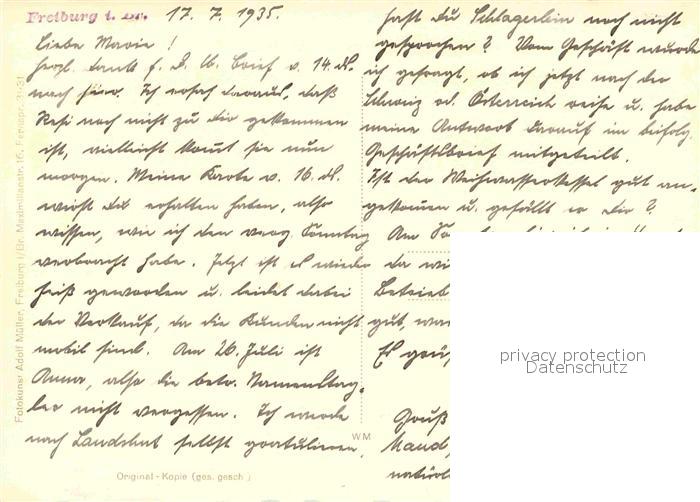 Freiburg i. Br. 17. 7. 1935.
Liebe Marie !
Herzl. Dank f. D. lb. Brief v. 14. ds.
nach hier. Ich ersah daraus, daß
Resi noch nicht zu dir gekommen
ist, vielleicht kommt sie nun
morgen. Meine Karte v. 16. ds.
wirst du erhalten haben, also
wissen, wie ich den verg. Sonntag
verbracht habe. Jetzt ist es wieder
heiß geworden u. leidet dabei
der Verkauf, da die Kunden nicht
mobil sind. Am 26. Juli ist
Anna, also die betr. Namenstag-
ler nicht vergessen. Ich werde
nach Landshut selbst gratulieren.
hast du Schlagerlein noch nicht
gesprochen ? Vom Geschäft wurde
ich gefragt, ob ich jetzt nach der
Schweiz od. Österreich reise u. habe
meine Antwort darauf im beifolg.
Geschäftsbrief mitgeteilt.
Ist der Weihwasserkessel gut an-
gekommen u. gefällt er dir ?
Am
da
Betrieb
gut,
Es
Gruß
natürl
Fotokunst Adolf Müller, Freiburg i/Br. Maximilianstr. 15, Fernspr. 31-31
Original - Kopie (ges. gesch.)
WM
privacy protection
Datenschutz